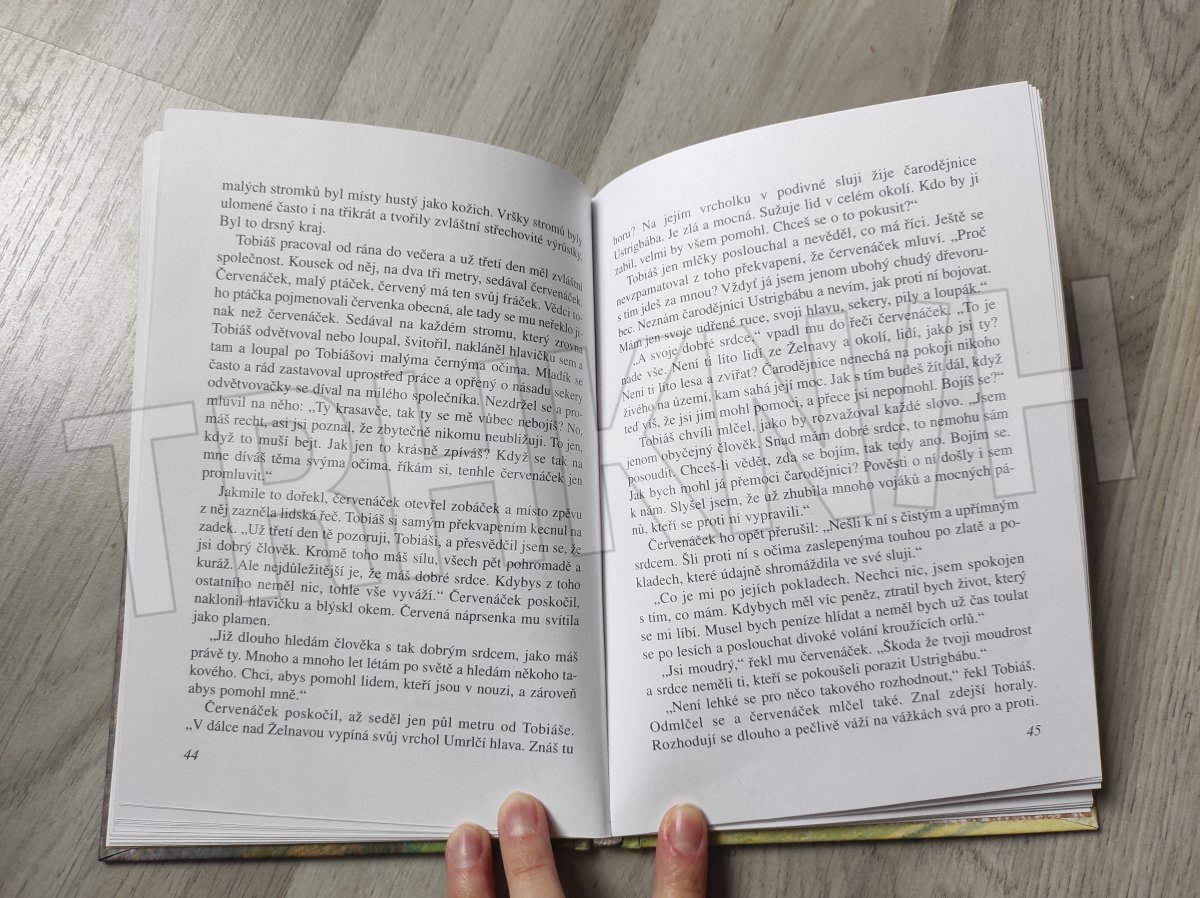 malých stromků byl místy hustý jako kožich. Vršky stromů byly
ulomené často i na třikrát a tvořily zvláštní střechovité výrůstky.
Byl to drsný kraj.
Tobiáš pracoval od rána do večera a už třetí den měl zvláštní
společnost. Kousek od něj, na dva tři metry, sedával červenáček.
Červenáček, malý ptáček, červený má ten svůj fráček. Vědci to-
ho ptáčka pojmenovali červenka obecná, ale tady se mu neřeklo ji-
nak než červenáček. Sedával na každém stromu, který zrovna
Tobiáš odvětvoval nebo loupal, švitořil, nakláněl hlavičku sem a
tam a loupal po Tobiášovi malýma černýma očima. Mladík se
často a rád zastavoval uprostřed práce a opřený o násadu sekery
odvětvovačky se díval na milého společníka. Nezdržel se a pro-
mluvil na něho: „Ty krasavče, tak ty se mě vůbec nebojíš? No,
máš recht, asi jsi poznal, že zbytečně nikomu neubližuji. To jen,
když to musí bejt. Jak jen to krásně zpíváš? Když se tak na
mne díváš těma svýma očima, říkám si, tenhle červenáček jen
promluvit.“
Jakmile to dořekl, červenáček otevřel zobáček a místo zpěvu
z něj zazněla lidská řeč. Tobiáš si samým překvapením kecnul na
zadek. „Už třetí den tě pozoruji, Tobiáši, a přesvědčil jsem se, že
jsi dobrý člověk. Kromě toho máš sílu, všech pět pohromadě a
kuráž. Ale nejdůležitější je, že máš dobré srdce. Kdybys z toho
ostatního neměl nic, tohle vše vyváží.“ Červenáček poskočil,
naklonil hlavičku a blýskl okem. Červená náprsenka mu svítila
jako plamen.
„Již dlouho hledám člověka s tak dobrým srdcem, jako máš
právě ty. Mnoho a mnoho let létám po světě a hledám někoho ta-
kového. Chci, abys pomohl lidem, kteří jsou v nouzi, a zároveň
abys pomohl mně.“
Červenáček poskočil, až seděl jen půl metru od Tobiáše.
„V dálce nad Želnavou vypíná svůj vrchol Umrlčí hlava. Znáš tu
44
horu? Na jejím vrcholku v podivné sluji žije čarodějnice
Ustrigbába. Je zlá a mocná. Sužuje lid v celém okolí. Kdo by ji
zabil, velmi by všem pomohl. Chceš se o to pokusit?“
Tobiáš jen mlčky poslouchal a nevěděl, co má říci. Ještě se
nevzpamatoval z toho překvapení, že červenáček mluví. „Proč
s tím jdeš za mnou? Vždyť já jsem jenom ubohý chudý dřevoru-
bec. Neznám čarodějnici Ustrigbábu a nevím, jak proti ní bojovat.
Mám jen svoje udřené ruce, svoji hlavu, sekery, pily a loupák.“
„A svoje dobré srdce,“ vpadl mu do řeči červenáček. „To je
nade vše. Není ti líto lidí ze Želnavy a okolí, lidí, jako jsi ty?
Není ti líto lesa a zvířat? Čarodějnice nenechá na pokoji nikoho
živého na území, kam sahá její moc. Jak s tím budeš žít dál, když
teď víš, že jsi jim mohl pomoci, a přece jsi nepomohl. Bojíš se?“
Tobiáš chvíli mlčel, jako by rozvažoval každé slovo. „Jsem
jenom obyčejný člověk. Snad mám dobré srdce, to nemohu sám
posoudit. Chceš-li vědět, zda se bojím, tak tedy ano. Bojím se.
Jak bych mohl já přemoci čarodějnici? Pověsti o ní došly i sem
k nám. Slyšel jsem, že už zhubila mnoho vojáků a mocných pá-
nů, kteří se proti ní vypravili.“
Červenáček ho opět přerušil: „Nešli k ní s čistým a upřímným
srdcem. Šli proti ní s očima zaslepenýma touhou po zlatě a po-
kladech, které údajně shromáždila ve své sluji.“
„Co je mi po jejích pokladech. Nechci nic, jsem spokojen
s tím, co mám. Kdybych měl víc peněz, ztratil bych život, který
se mi líbí. Musel bych peníze hlídat a neměl bych už čas toulat
se po lesích a poslouchat divoké volání kroužících orlů.“
„Jsi moudrý,“ řekl mu červenáček. „Škoda že tvoji moudrost
a srdce neměli ti, kteří se pokoušeli porazit Ustrigbábu.“
„Není lehké se pro něco takového rozhodnout,“ řekl Tobiáš.
Odmlčel se a červenáček mlčel také. Znal zdejší horaly.
Rozhodují se dlouho a pečlivě váží na vážkách svá pro a proti.
45
TRHKNIH